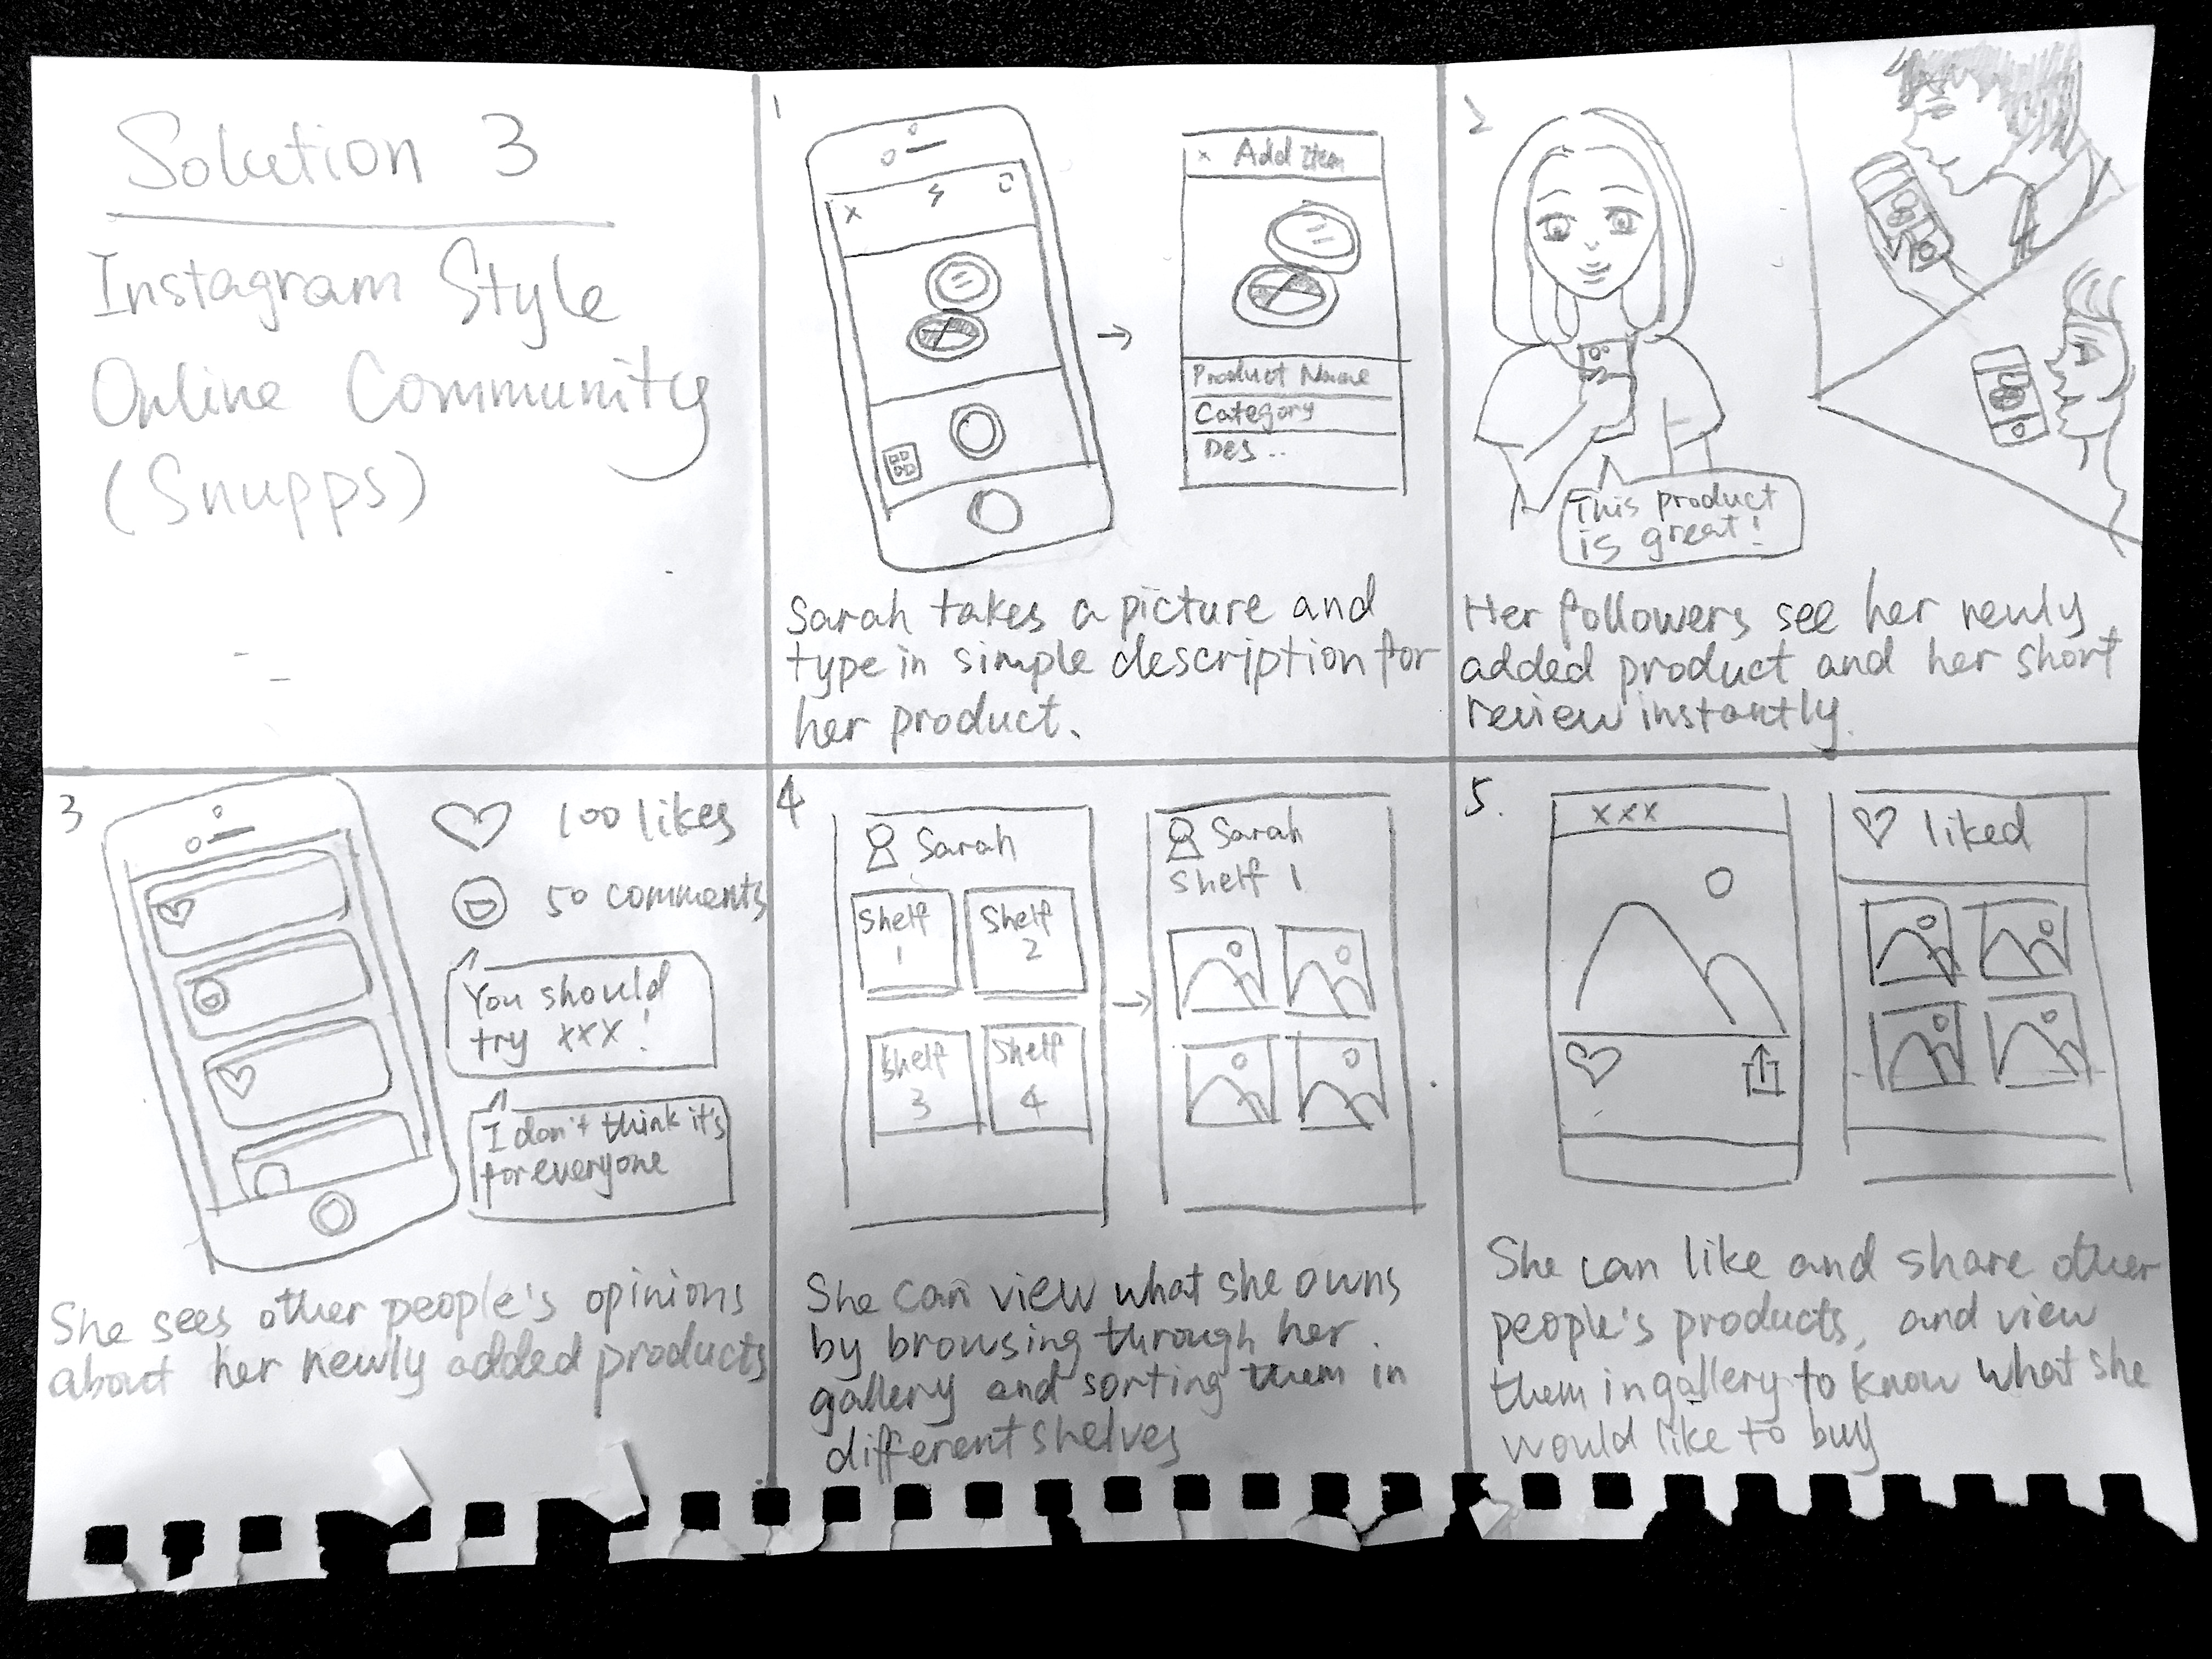 Solution 3
Instagram Style
Online Community
(Snupps)
1
x
x Add Item
Product Name
Category
Des..
Sarah takes a picture and
type in simple description for
her product.
2
This product
is great!
Her followers see her newly
added product and her short
review instantly.
3
100 likes
50 comments
You should
try xxx!
I don't think it's
for everyone
She sees other people's opinions
about her newly added products
4
Sarah
Shelf 1
Shelf 2
Shelf 3
Shelf 4
Sarah
Shelf 1
She can view what she owns
by browsing through her
gallery and sorting them in
different shelves
5.
xxx
liked
She can like and share other
people's products, and view
them in gallery to know what she
would like to buy